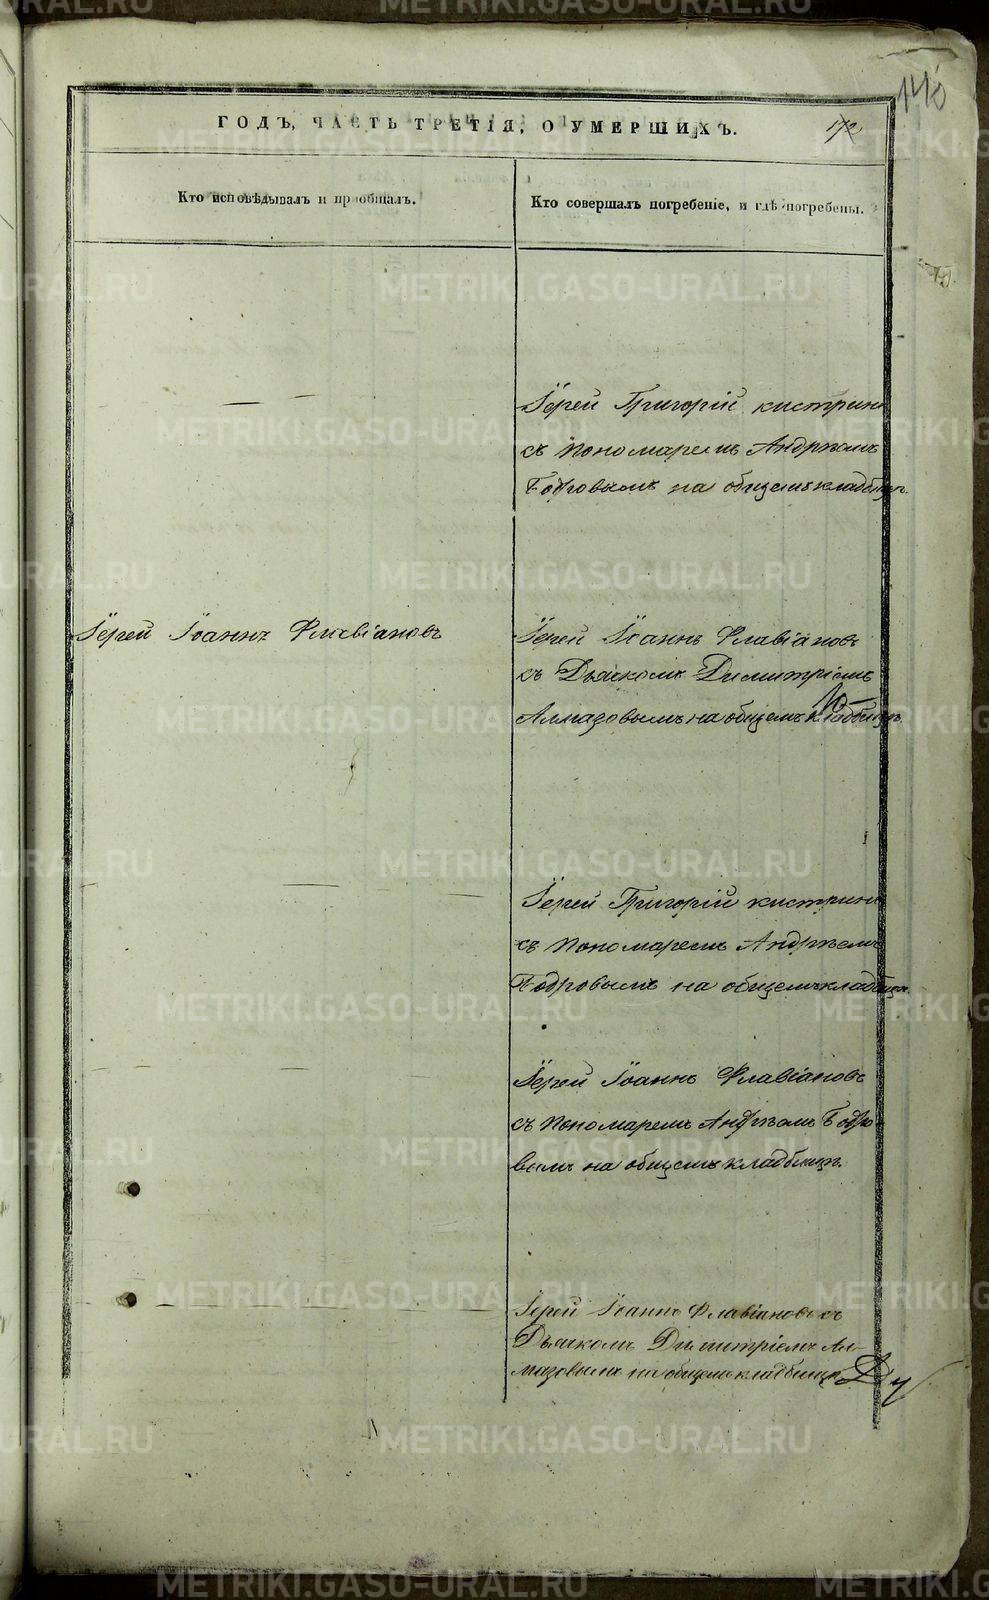 140
ГОДЪ, ЧАСТЬ ТРЕТІЯ, О УМЕРШИХЪ.
172
Кто исповѣдывалъ и пріобщалъ.
Кто совершалъ погребеніе, и гдѣ погребены.
Іерей Григорій Кистринъ
съ пономаремъ Андреемъ
Бодровымъ на общемъ кладбищѣ.
Іерей Іоаннъ Флавіановъ
Іерей Іоаннъ Флавіановъ
съ Дьячкомъ Димитріемъ
Алмазовымъ на общемъ кладбищѣ.
Іерей Григорій Кистринъ
съ пономаремъ Андреемъ
Бодровымъ на общемъ кладбищѣ.
Іерей Іоаннъ Флавіановъ
съ пономаремъ Андреемъ Бодро-
вымъ на общемъ кладбищѣ.
Іерей Іоаннъ Флавіановъ съ
Дьячкомъ Димитріемъ Ал-
мазовымъ на общемъ кладбищѣ
METRIKI.GASO-URAL.RU